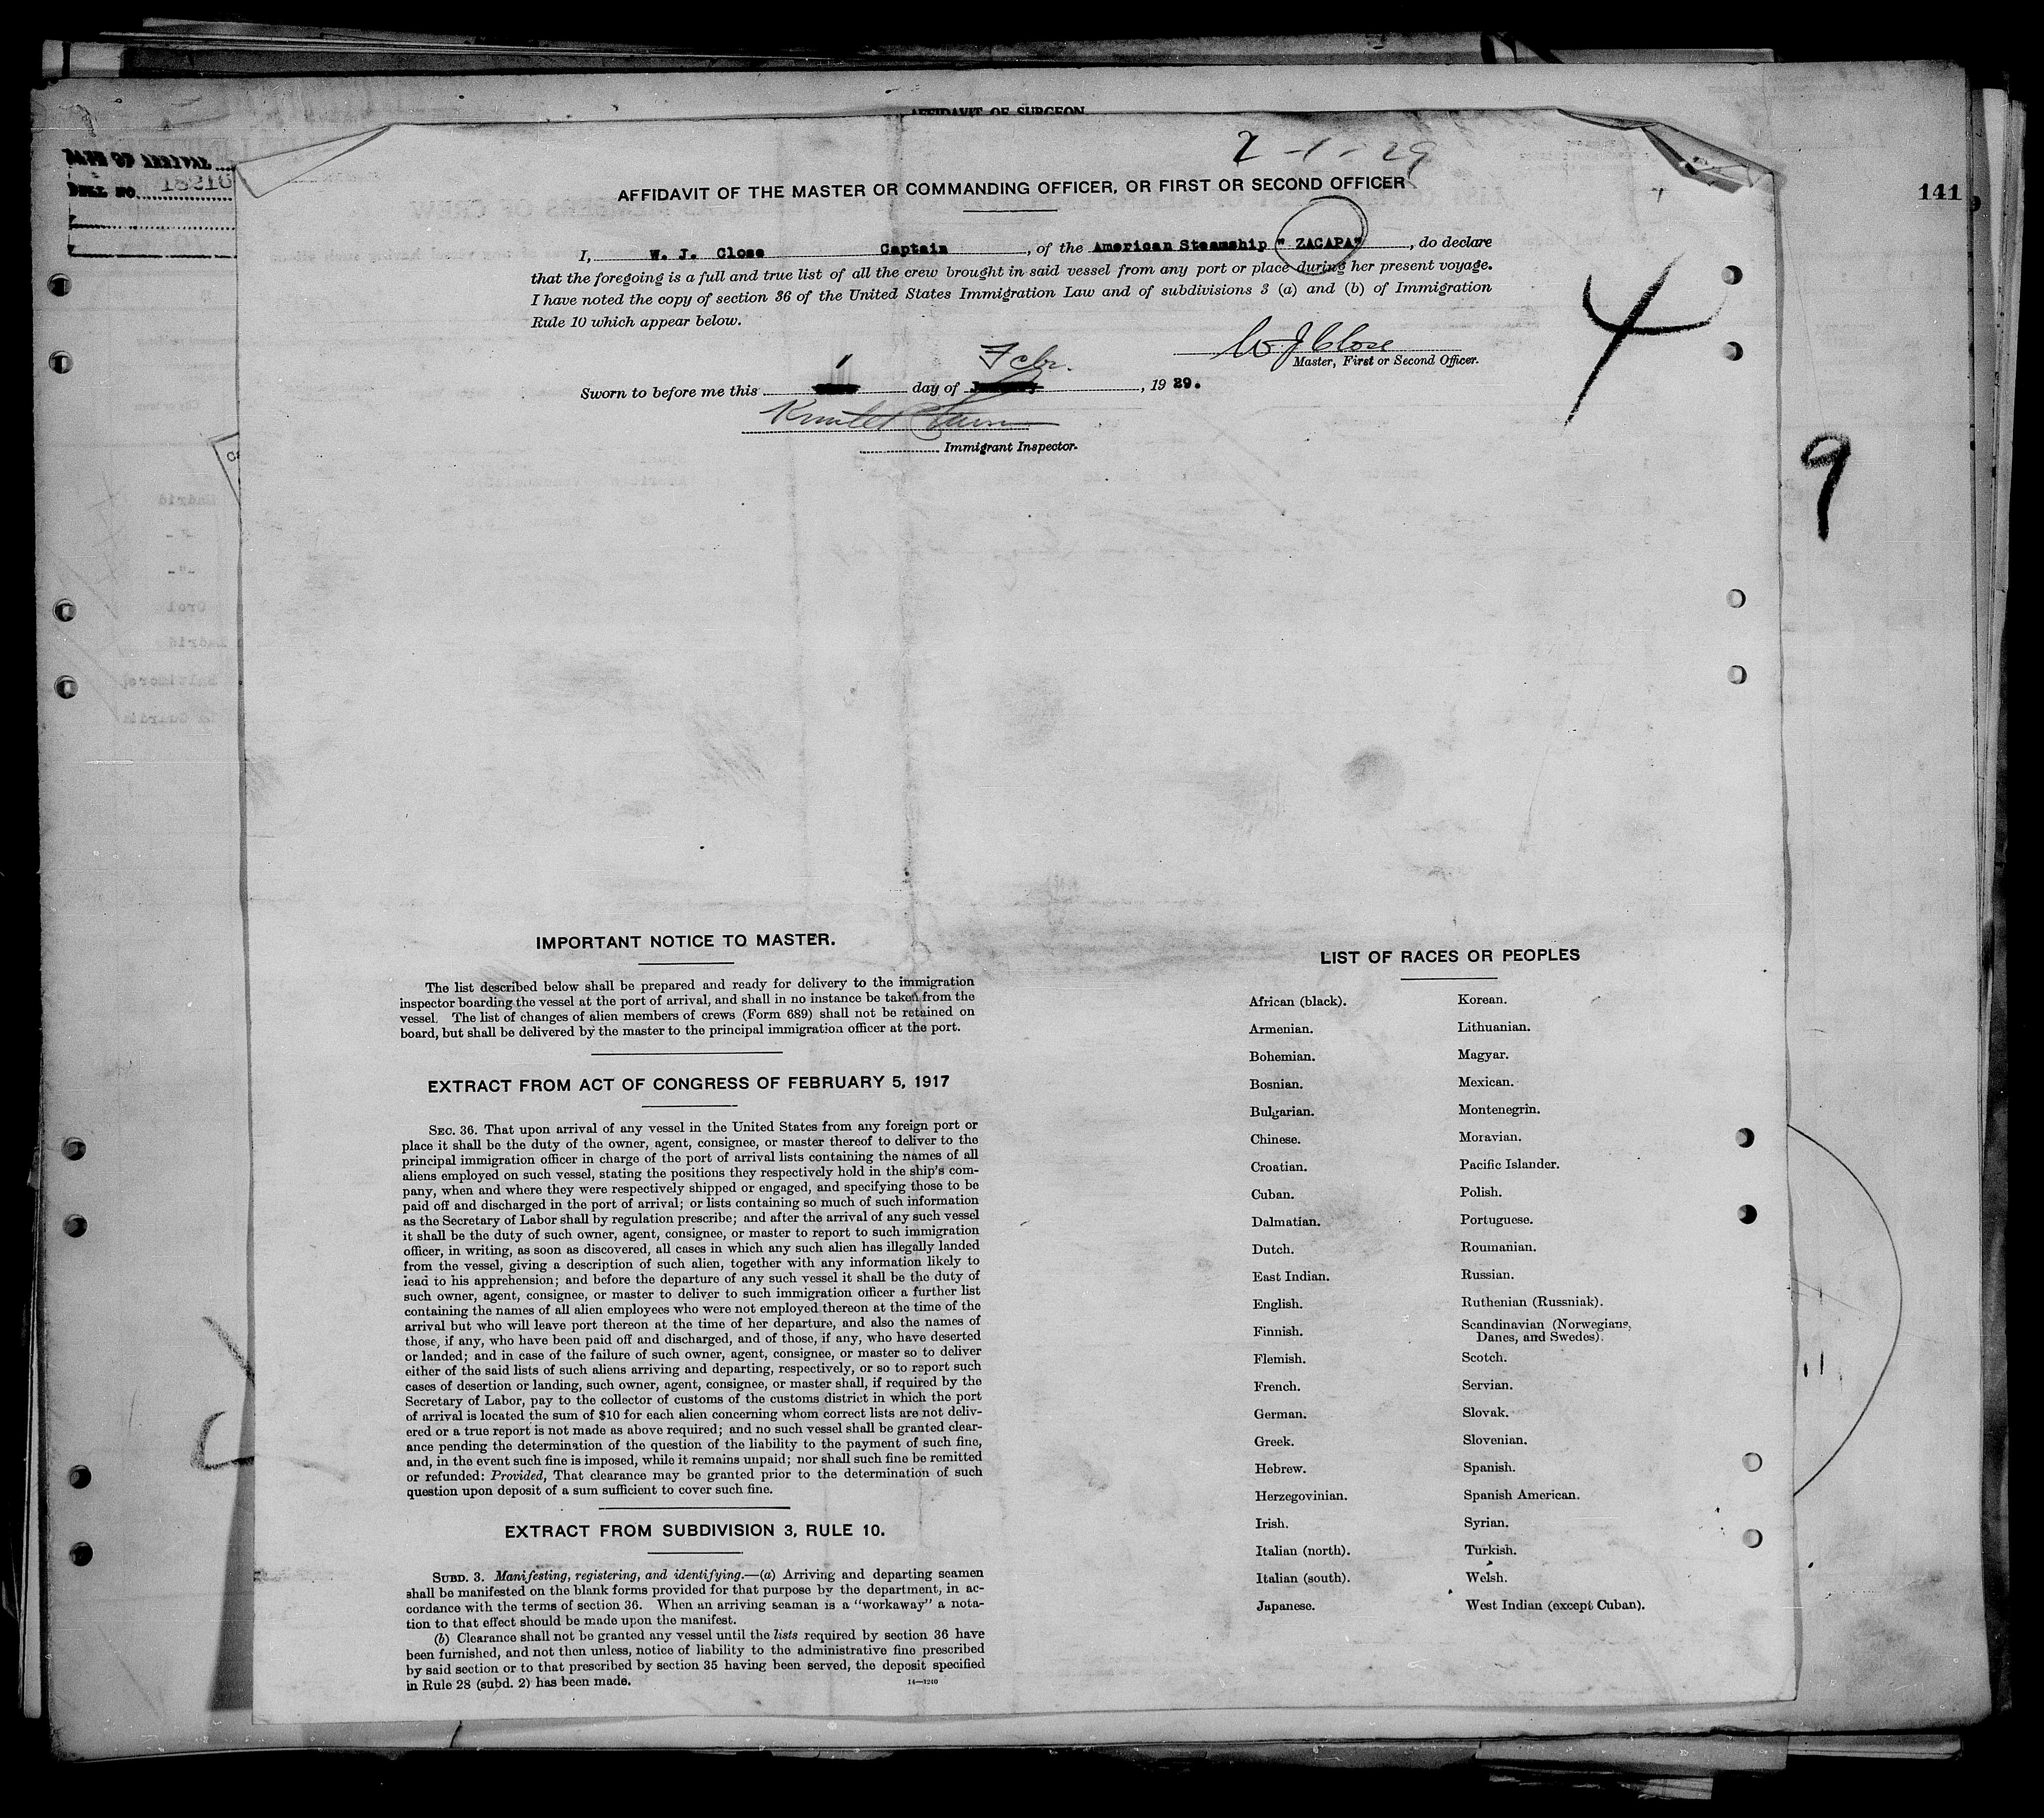 AFFIDAVIT OF SURGEON
2-1-29
DATE OF ARRIVAL
BELL NO. 18216
141
AFFIDAVIT OF THE MASTER OR COMMANDING OFFICER, OR FIRST OR SECOND OFFICER
I, W. J. Close Captain, of the American Steamship " ZACAPA", do declare
that the foregoing is a full and true list of all the crew brought in said vessel from any port or place during her present voyage.
I have noted the copy of section 36 of the United States Immigration Law and of subdivisions 3 (a) and (b) of Immigration
Rule 10 which appear below.
4
W J Close
Master, First or Second Officer.
Sworn to before me this 1 day of Febr., 1929.
Immigrant Inspector.
9
IMPORTANT NOTICE TO MASTER.
The list described below shall be prepared and ready for delivery to the immigration
inspector boarding the vessel at the port of arrival, and shall in no instance be taken from the
vessel. The list of changes of alien members of crews (Form 689) shall not be retained on
board, but shall be delivered by the master to the principal immigration officer at the port.
EXTRACT FROM ACT OF CONGRESS OF FEBRUARY 5, 1917
SEC. 36. That upon arrival of any vessel in the United States from any foreign port or
place it shall be the duty of the owner, agent, consignee, or master thereof to deliver to the
principal immigration officer in charge of the port of arrival lists containing the names of all
aliens employed on such vessel, stating the positions they respectively hold in the ship's com-
pany, when and where they were respectively shipped or engaged, and specifying those to be
paid off and discharged in the port of arrival; or lists containing so much of such information
as the Secretary of Labor shall by regulation prescribe; and after the arrival of any such vessel
it shall be the duty of such owner, agent, consignee, or master to report to such immigration
officer, in writing, as soon as discovered, all cases in which any such alien has illegally landed
from the vessel, giving a description of such alien, together with any information likely to
lead to his apprehension; and before the departure of any such vessel it shall be the duty of
such owner, agent, consignee, or master to deliver to such immigration officer a further list
containing the names of all alien employees who were not employed thereon at the time of the
arrival but who will leave port thereon at the time of her departure, and also the names of
those, if any, who have been paid off and discharged, and of those, if any, who have deserted
or landed; and in case of the failure of such owner, agent, consignee, or master so to deliver
either of the said lists of such aliens arriving and departing, respectively, or so to report such
cases of desertion or landing, such owner, agent, consignee, or master shall, if required by the
Secretary of Labor, pay to the collector of customs of the customs district in which the port
of arrival is located the sum of $10 for each alien concerning whom correct lists are not deliv-
ered or a true report is not made as above required; and no such vessel shall be granted clear-
ance pending the determination of the question of the liability to the payment of such fine,
and, in the event such fine is imposed, while it remains unpaid; nor shall such fine be remitted
or refunded: Provided, That clearance may be granted prior to the determination of such
question upon deposit of a sum sufficient to cover such fine.
EXTRACT FROM SUBDIVISION 3, RULE 10.
SUBD. 3. Manifesting, registering, and identifying.—(a) Arriving and departing seamen
shall be manifested on the blank forms provided for that purpose by the department, in ac-
cordance with the terms of section 36. When an arriving seaman is a "workaway" a nota-
tion to that effect should be made upon the manifest.
(b) Clearance shall not be granted any vessel until the lists required by section 36 have
been furnished, and not then unless, notice of liability to the administrative fine prescribed
by said section or to that prescribed by section 35 having been served, the deposit specified
in Rule 28 (subd. 2) has been made.
14—1240
LIST OF RACES OR PEOPLES
African (black).
Armenian.
Bohemian.
Bosnian.
Bulgarian.
Chinese.
Croatian.
Cuban.
Dalmatian.
Dutch.
East Indian.
English.
Finnish.
Flemish.
French.
German.
Greek.
Hebrew.
Herzegovinian.
Irish.
Italian (north).
Italian (south).
Japanese.
Korean.
Lithuanian.
Magyar.
Mexican.
Montenegrin.
Moravian.
Pacific Islander.
Polish.
Portuguese.
Roumanian.
Russian.
Ruthenian (Russniak).
Scandinavian (Norwegians,
Danes, and Swedes).
Scotch.
Servian.
Slovak.
Slovenian.
Spanish.
Spanish American.
Syrian.
Turkish.
Welsh.
West Indian (except Cuban).